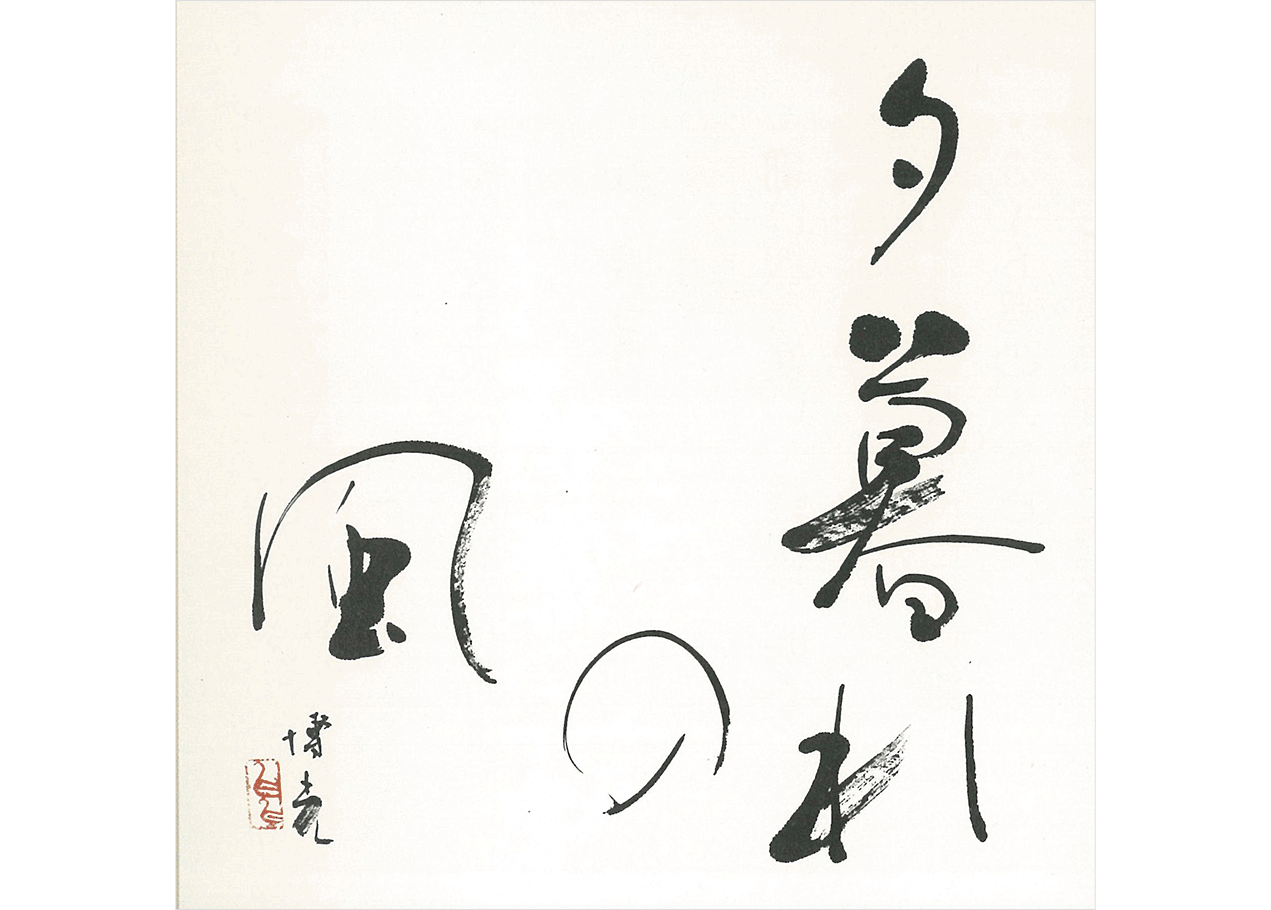 夕暮れ
の
風
博堯